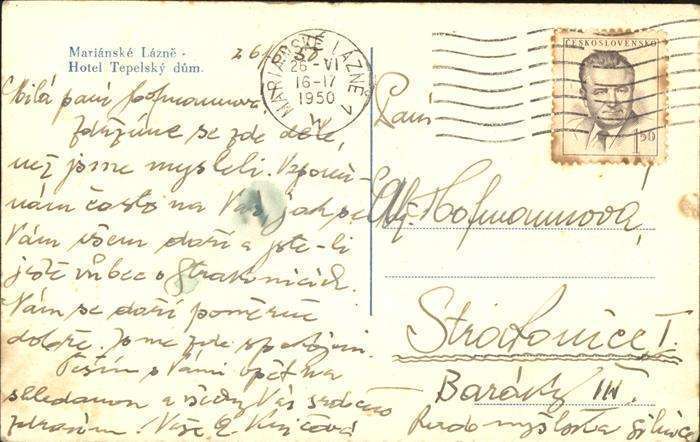 Mariánské Lázně -
Hotel Tepelský dům.
MARIÁNSKÉ LÁZNĚ 1
26.-VI
16-17
1950
ČESKOSLOVENSKO
1,50
Milá paní Hofmannová
Zdržíme se zde déle,
než jsme mysleli. Vzpomí-
nám často na Vás, jak se
Vám všem daří a jste-li
ještě vůbec v Strakonicích.
Vám se daří poměrně
dobře. Jsme zde spokojeni.
Těším s Vámi opět na
shledanou a všechny Vás srdečně
zdravím. Vaše
Paní
Hofmannová,
Strakonice I.
Baráky III.